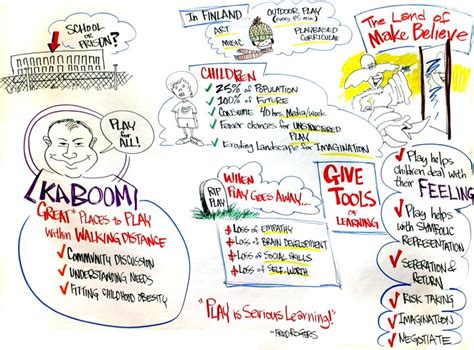 SCHOOL
OR
PRISON?
In FINLAND...
ART
MUSIC
OUTDOOR PLAY
(every 45 min)
PLAYBASED
CURRICULUM
The Land of
Make Believe
CHILDREN
25% of POPULATION
100% of FUTURE
CONSUME 40 hrs. Media/week
Fewer chances for UNSTRUCTURED
PLAY
Eroding Landscape for IMAGINATION
PLAY
for
ALL!
KABOOM
GREAT PLACES to PLAY
within WALKING DISTANCE
COMMUNITY DISCUSSION
UNDERSTANDING NEEDS
FITTING CHILDHOOD OBESITY
RIP
PLAY
WHEN
PLAY GOES AWAY...
Loss of EMPATHY
Loss of BRAIN DEVELOPMENT
Loss of SOCIAL SKILLS
Loss of SELF-WORTH
GIVE
TOOLS
of
LEARNING
"PLAY is SERIOUS LEARNING!"
~FRED ROGERS
Play helps
children deal with
their FEELINGS
Play helps
with SYMBOLIC
REPRESENTATION
SEPERATION &
RETURN
RISK TAKING
IMAGINATION
NEGOTIATE